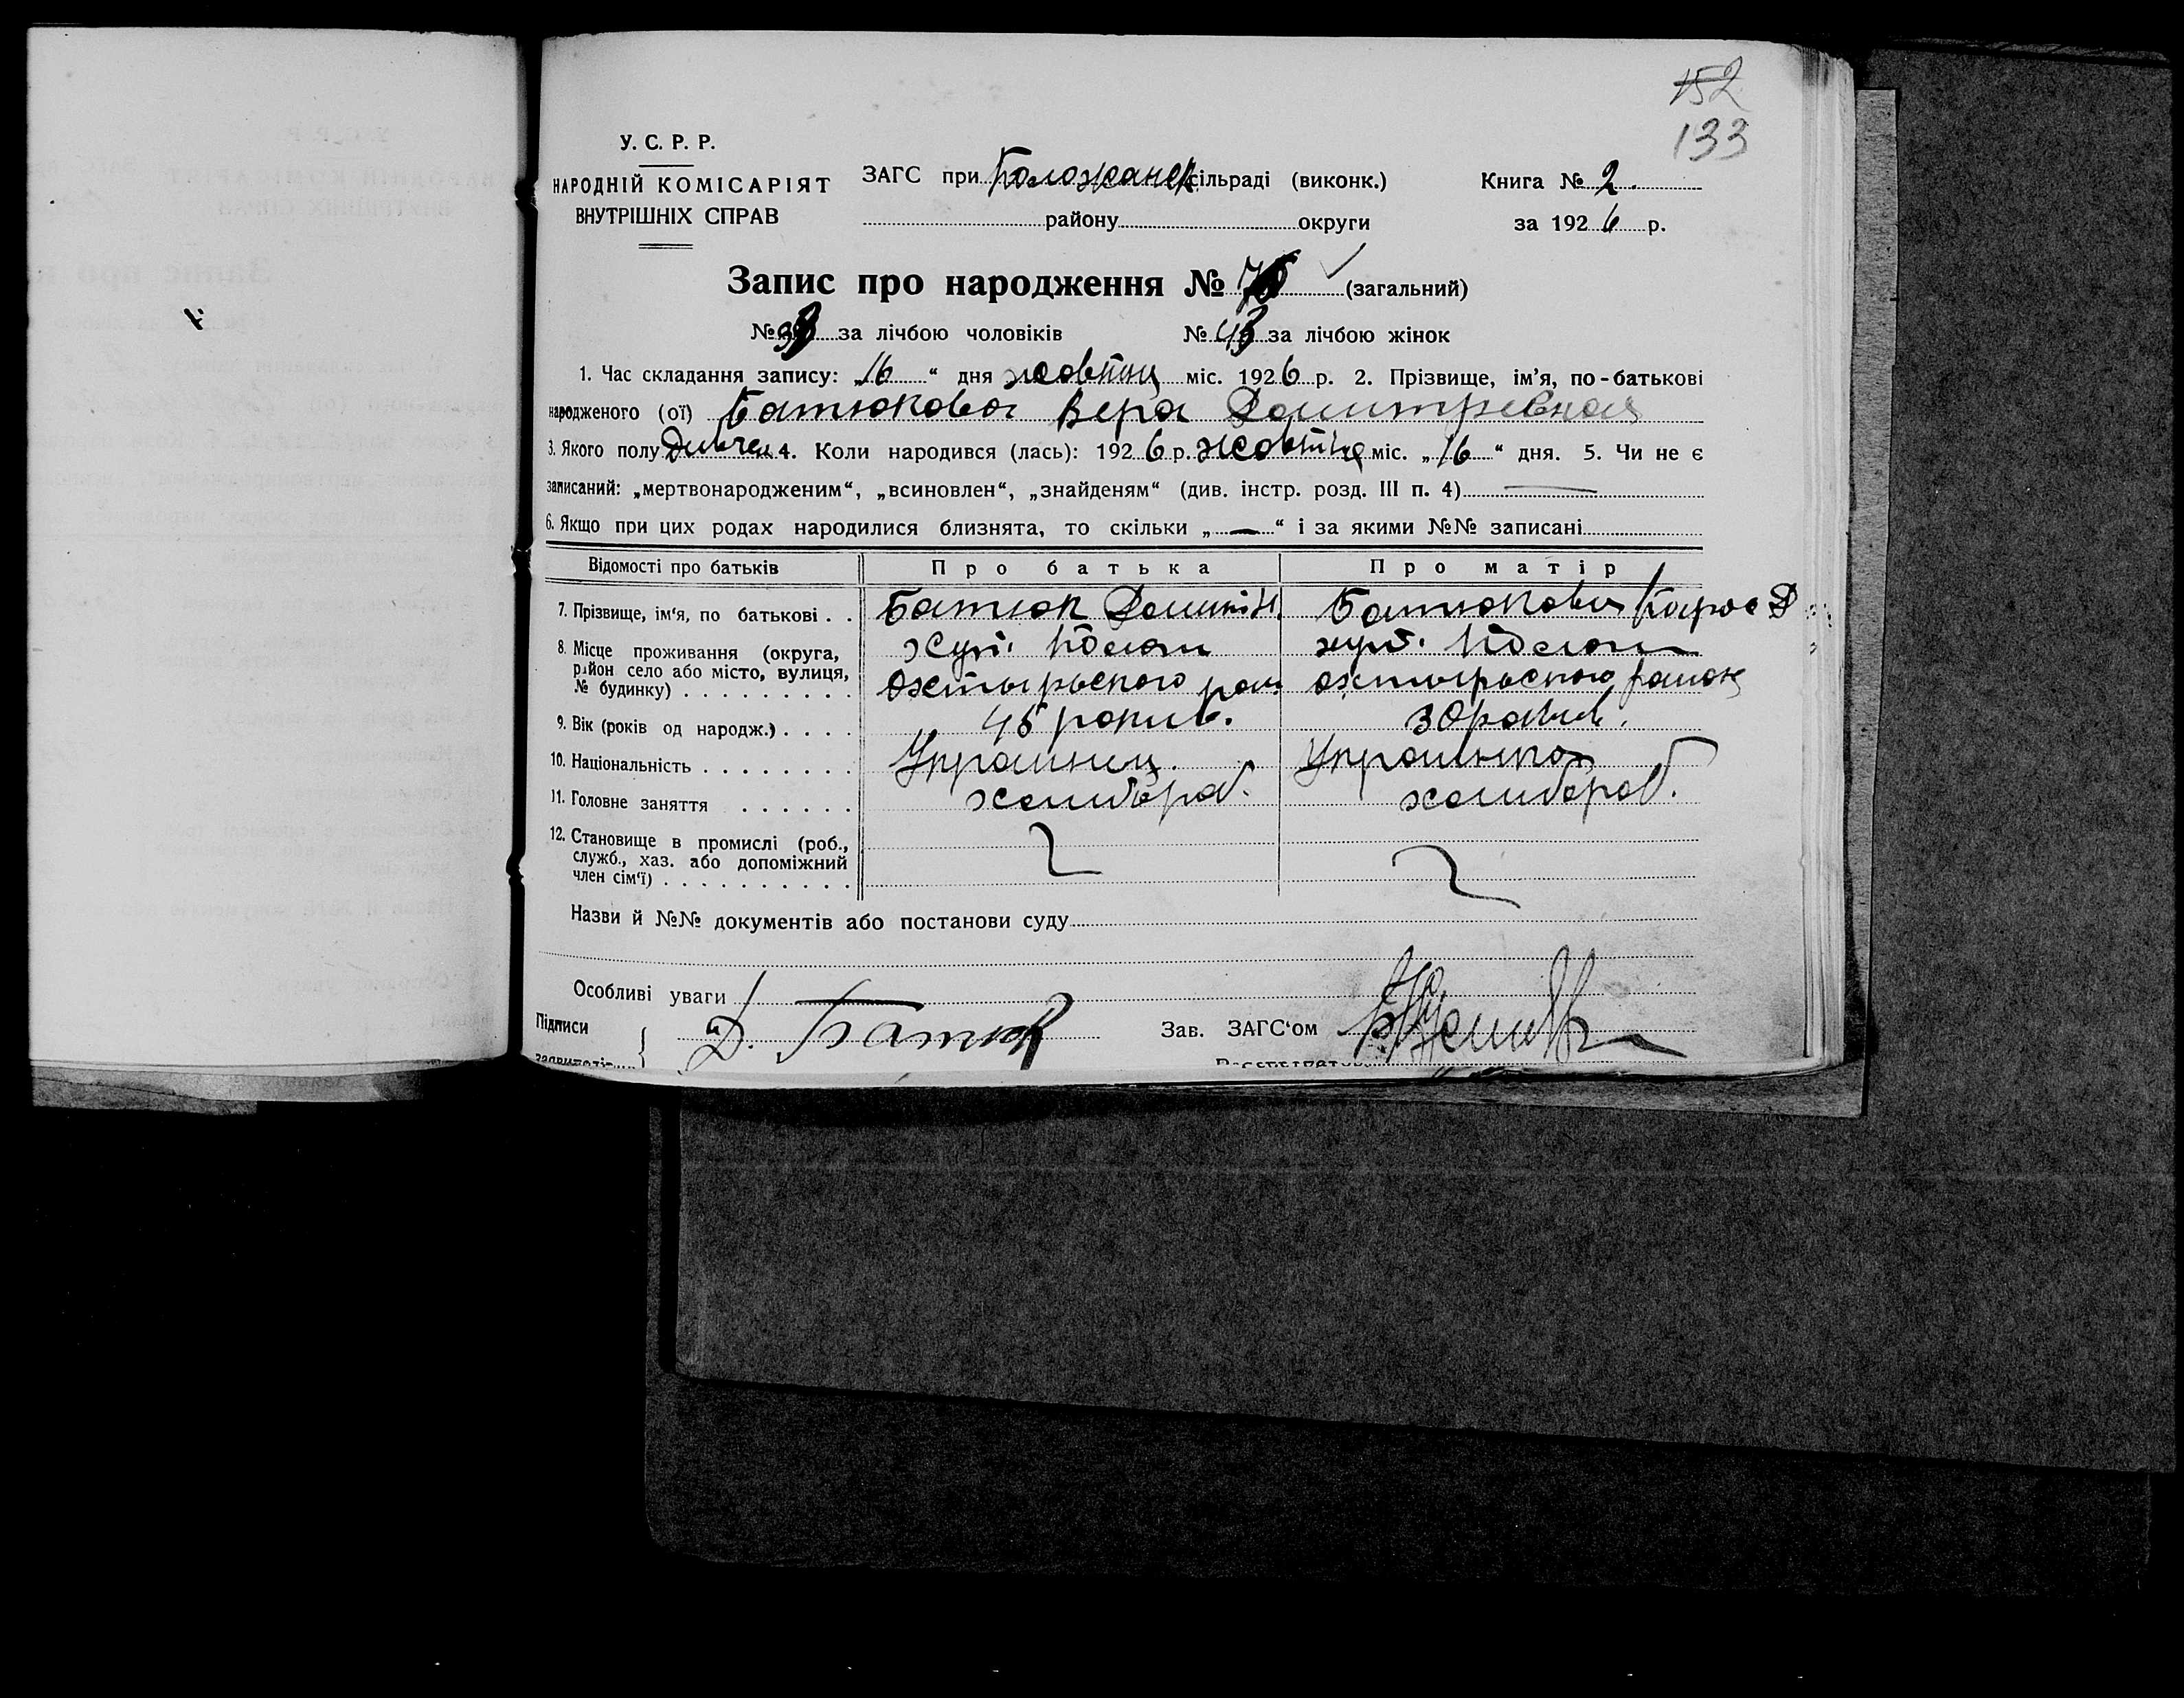 152
133
У. С. Р. Р.
НАРОДНІЙ КОМІСАРІЯТ
ВНУТРІШНІХ СПРАВ
ЗАГС при сільраді (виконк.)
району округи
Книга № 2.
за 1926 р.
Запис про народження № (загальний)
№ за лічбою чоловіків № 43 за лічбою жінок
1. Час складання запису: „16“ дня жовтня міс. 1926 р. 2. Прізвище, ім'я, по-батькові
народженого (ої) Батюкова Вера Дмитревная
3. Якого полу Дивчен 4. Коли народився (лась): 1926 р. жовтня міс. „16“ дня. 5. Чи не є
записаний: „мертвонародженим“, „всиновлен“, „знайденям“ (див. інстр. розд. III п. 4) —
6. Якщо при цих родах народилися близнята, то скільки „—“ і за якими №№ записані
Відомості про батьків Про батька Про матір
7. Прізвище, ім'я, по батькові . . Батюк Батюкова
8. Місце проживання (округа, хут. хут.
район село або місто, вулиця,
№ будинку) . . . . . . . . . Охтырського рай охтырського району
9. Вік (років од народж.) . . . . 45 рокив. 30 рокив.
10. Національність . . . . . . . . Украинец. Украинка
11. Головне заняття . . . . . . хлибороб. хлибороб.
12. Становище в промислі (роб.,
служб., хаз. або допоміжний
член сім'ї) . . . . . . . . . .
Назви й №№ документів або постанови суду
Особливі уваги
Підписи
Д. Батюк
Зав. ЗАГС'ом